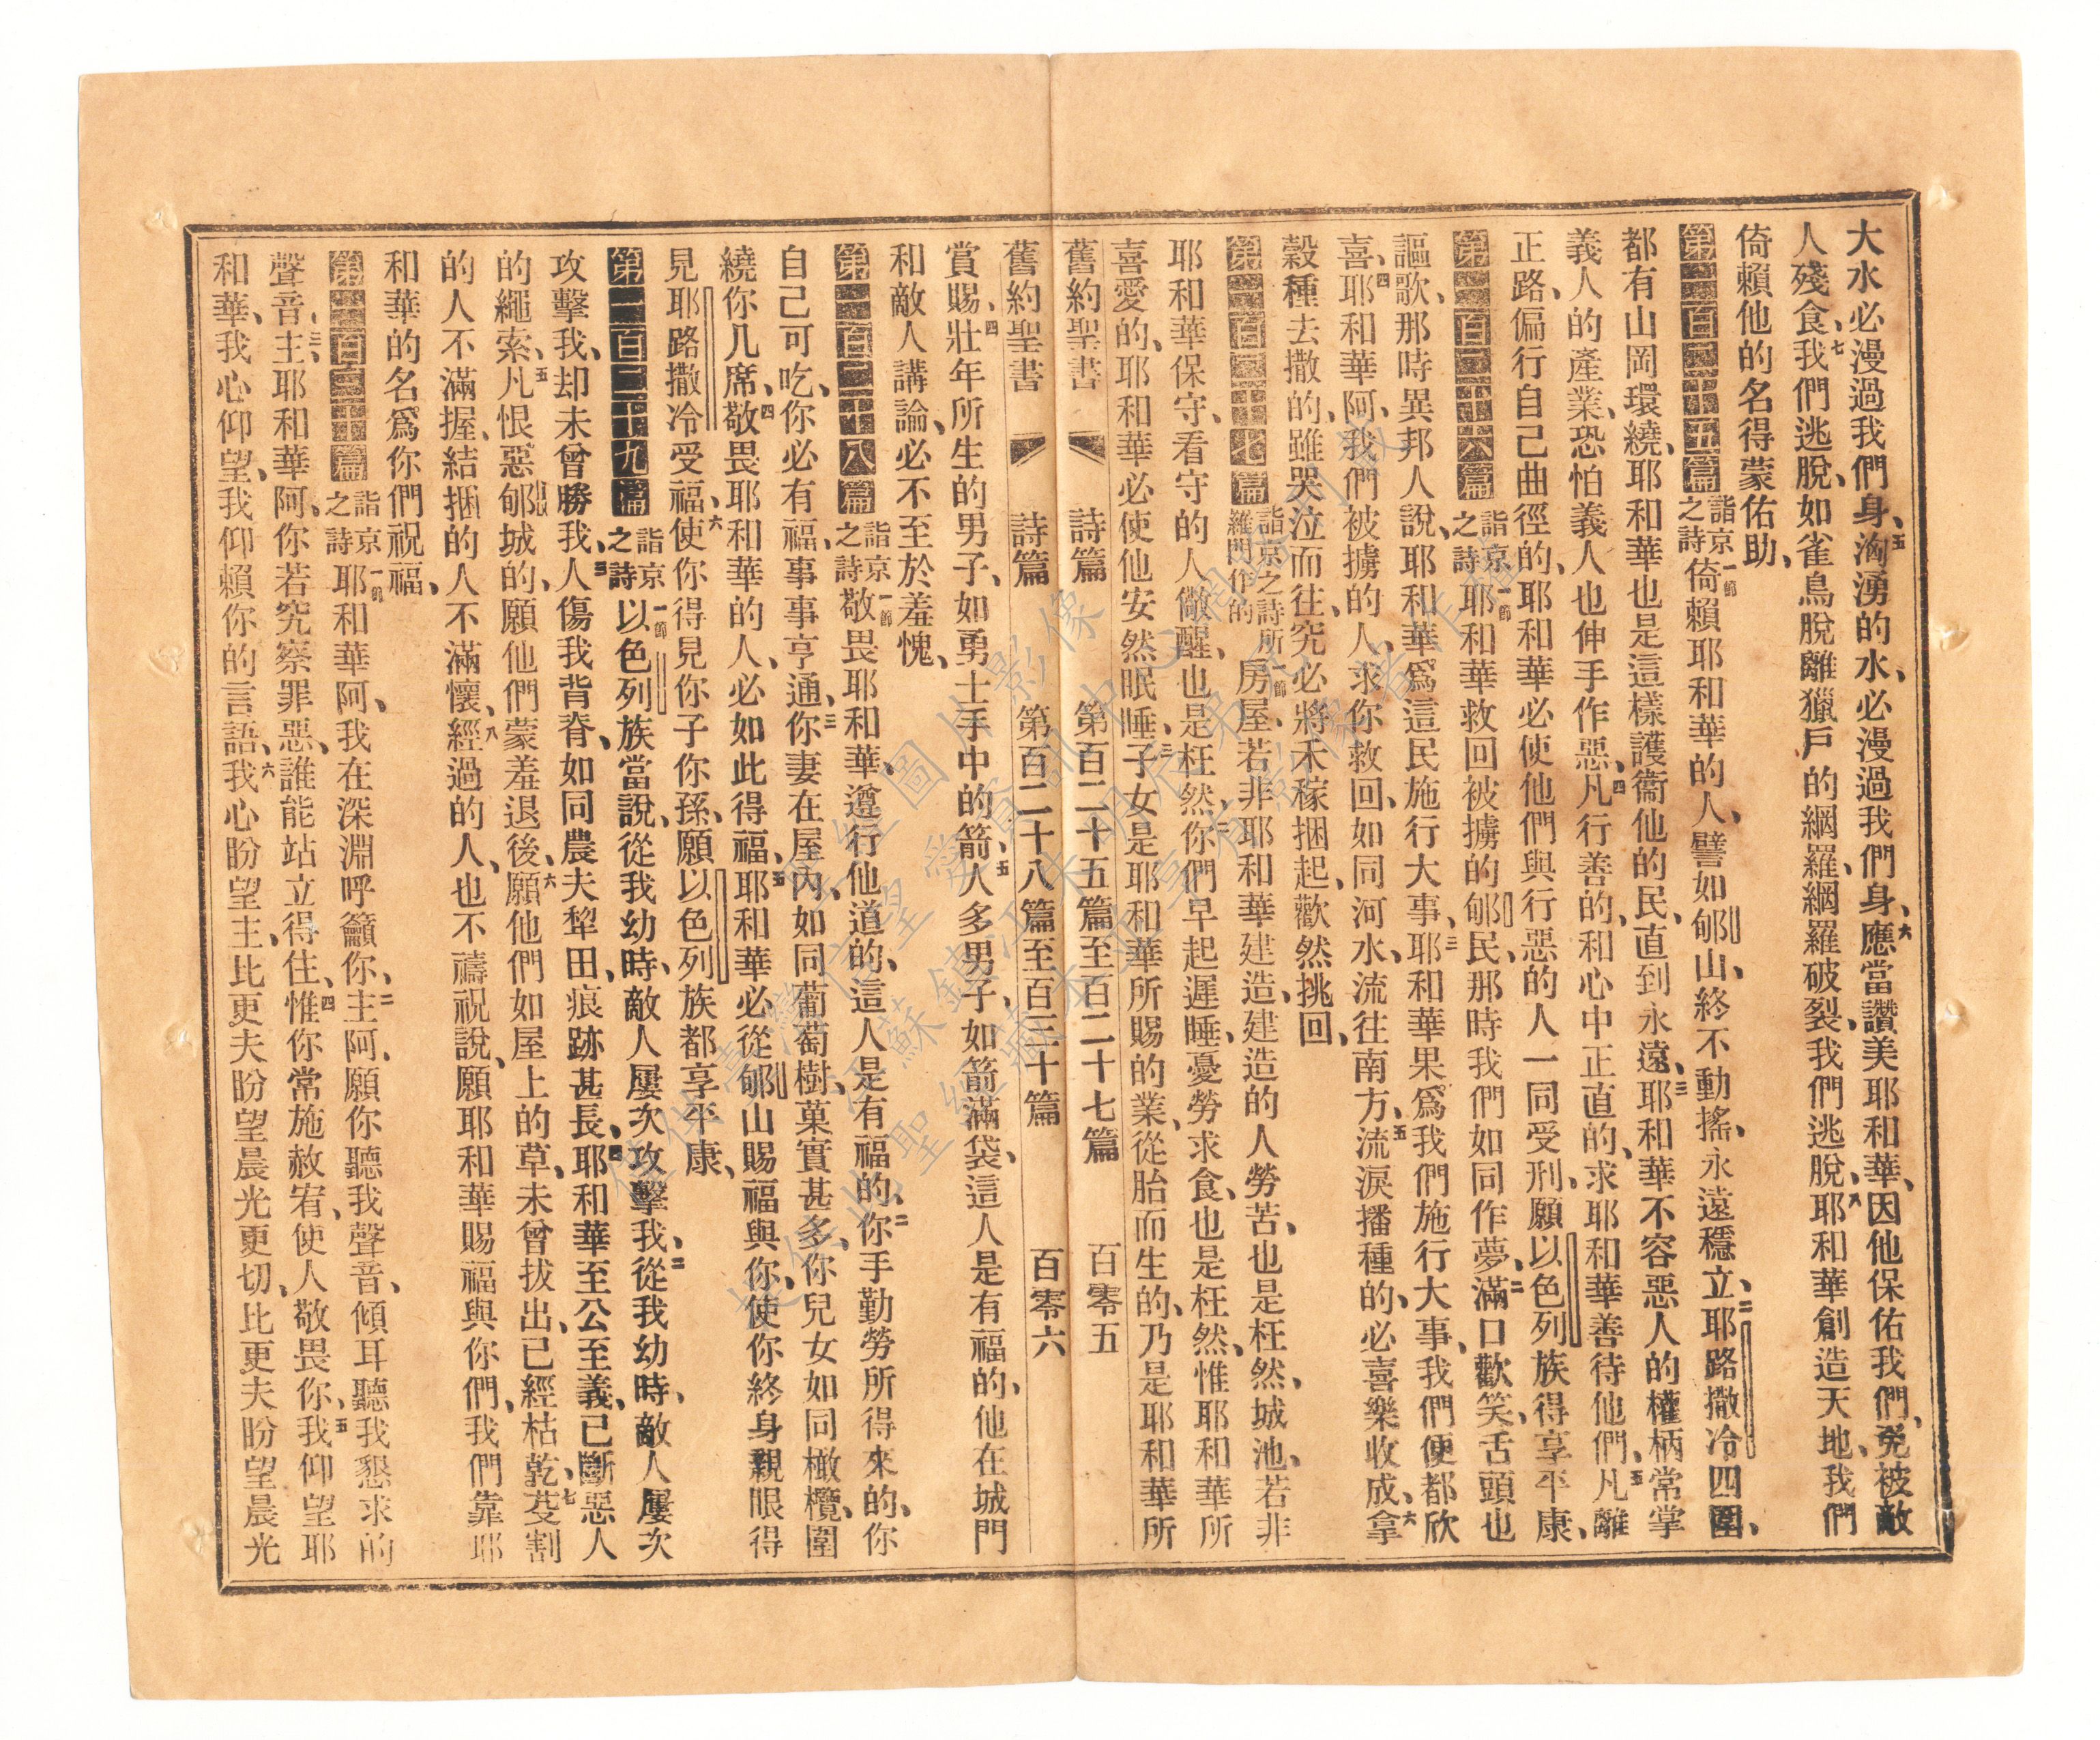 大水必漫過我們身、五洶湧的水、必漫過我們身、六應當讚美耶和華、因他保佑我們、免被敵
人殘食、七我們逃脫、如雀鳥脫離獵戶的網羅、網羅破裂、我們逃脫、八耶和華創造天地、我們
倚賴他的名得蒙佑助、
第一百二十五篇 詣京之詩 一節倚賴耶和華的人、譬如郇山、終不動搖、永遠穩立、二耶路撒冷四圍、
都有山岡環繞、耶和華也是這樣護衞他的民、直到永遠、三耶和華不容惡人的權柄常掌
義人的產業、恐怕義人也伸手作惡、四凡行善的、和心中正直的、求耶和華善待他們、五凡離
正路、偏行自己曲徑的、耶和華必使他們與行惡的人一同受刑、願以色列族得享平康、
第一百二十六篇 詣京之詩 一節耶和華救回被擄的郇民、那時我們如同作夢、二滿口歡笑、舌頭也
謳歌、那時異邦人說、耶和華爲這民施行大事、三耶和華果爲我們施行大事、我們便都欣
喜、四耶和華阿、我們被擄的人、求你救回、如同河水、流往南方、五流淚播種的、必喜樂收成、六拿
穀種去撒的、雖哭泣而往、究必將禾稼捆起、歡然挑回、
第一百二十七篇 詣京之詩所羅門作的 一節房屋、若非耶和華建造、建造的人勞苦、也是枉然、城池、若非
耶和華保守、看守的人儆醒、也是枉然、二你們早起遲睡、憂勞求食、也是枉然、惟耶和華所
喜愛的、耶和華必使他安然眠睡、三子女是耶和華所賜的業、從胎而生的、乃是耶和華所
舊約聖書 詩篇 第百二十五篇至百二十七篇 百零五
舊約聖書 詩篇 第百二十八篇至百三十篇 百零六
賞賜、四壯年所生的男子、如勇士手中的箭、五人多男子、如箭滿袋、這人是有福的、他在城門
和敵人講論、必不至於羞愧、
第一百二十八篇 詣京之詩 一節敬畏耶和華、遵行他道的、這人是有福的、二你手勤勞所得來的、你
自己可吃、你必有福、事事亨通、三你妻在屋內、如同葡萄樹、菓實甚多、你兒女如同橄欖、圍
繞你几席、四敬畏耶和華的人、必如此得福、五耶和華必從郇山賜福與你、使你終身親眼得
見耶路撒冷受福、六使你得見你子你孫、願以色列族都享平康、
第一百二十九篇 詣京之詩 一節以色列族當說、從我幼時、敵人屢次攻擊我、二從我幼時、敵人屢次
攻擊我、却未曾勝我、三人傷我背脊、如同農夫犂田、痕跡甚長、四耶和華至公至義、已斷惡人
的繩索、五凡恨惡郇城的、願他們蒙羞退後、六願他們如屋上的草、未曾拔出、已經枯乾、七芟割
的人不滿握、結捆的人不滿懷、八經過的人、也不禱祝說、願耶和華賜福與你們、我們靠耶
和華的名爲你們祝福、
第一百三十篇 詣京之詩 一節耶和華阿、我在深淵呼籲你、二主阿、願你聽我聲音、傾耳聽我懇求的
聲音、三主耶和華阿、你若究察罪惡、誰能站立得住、四惟你常施赦宥、使人敬畏你、五我仰望耶
和華、我心仰望、我仰賴你的言語、六我心盼望主、比更夫盼望晨光更切、比更夫盼望晨光